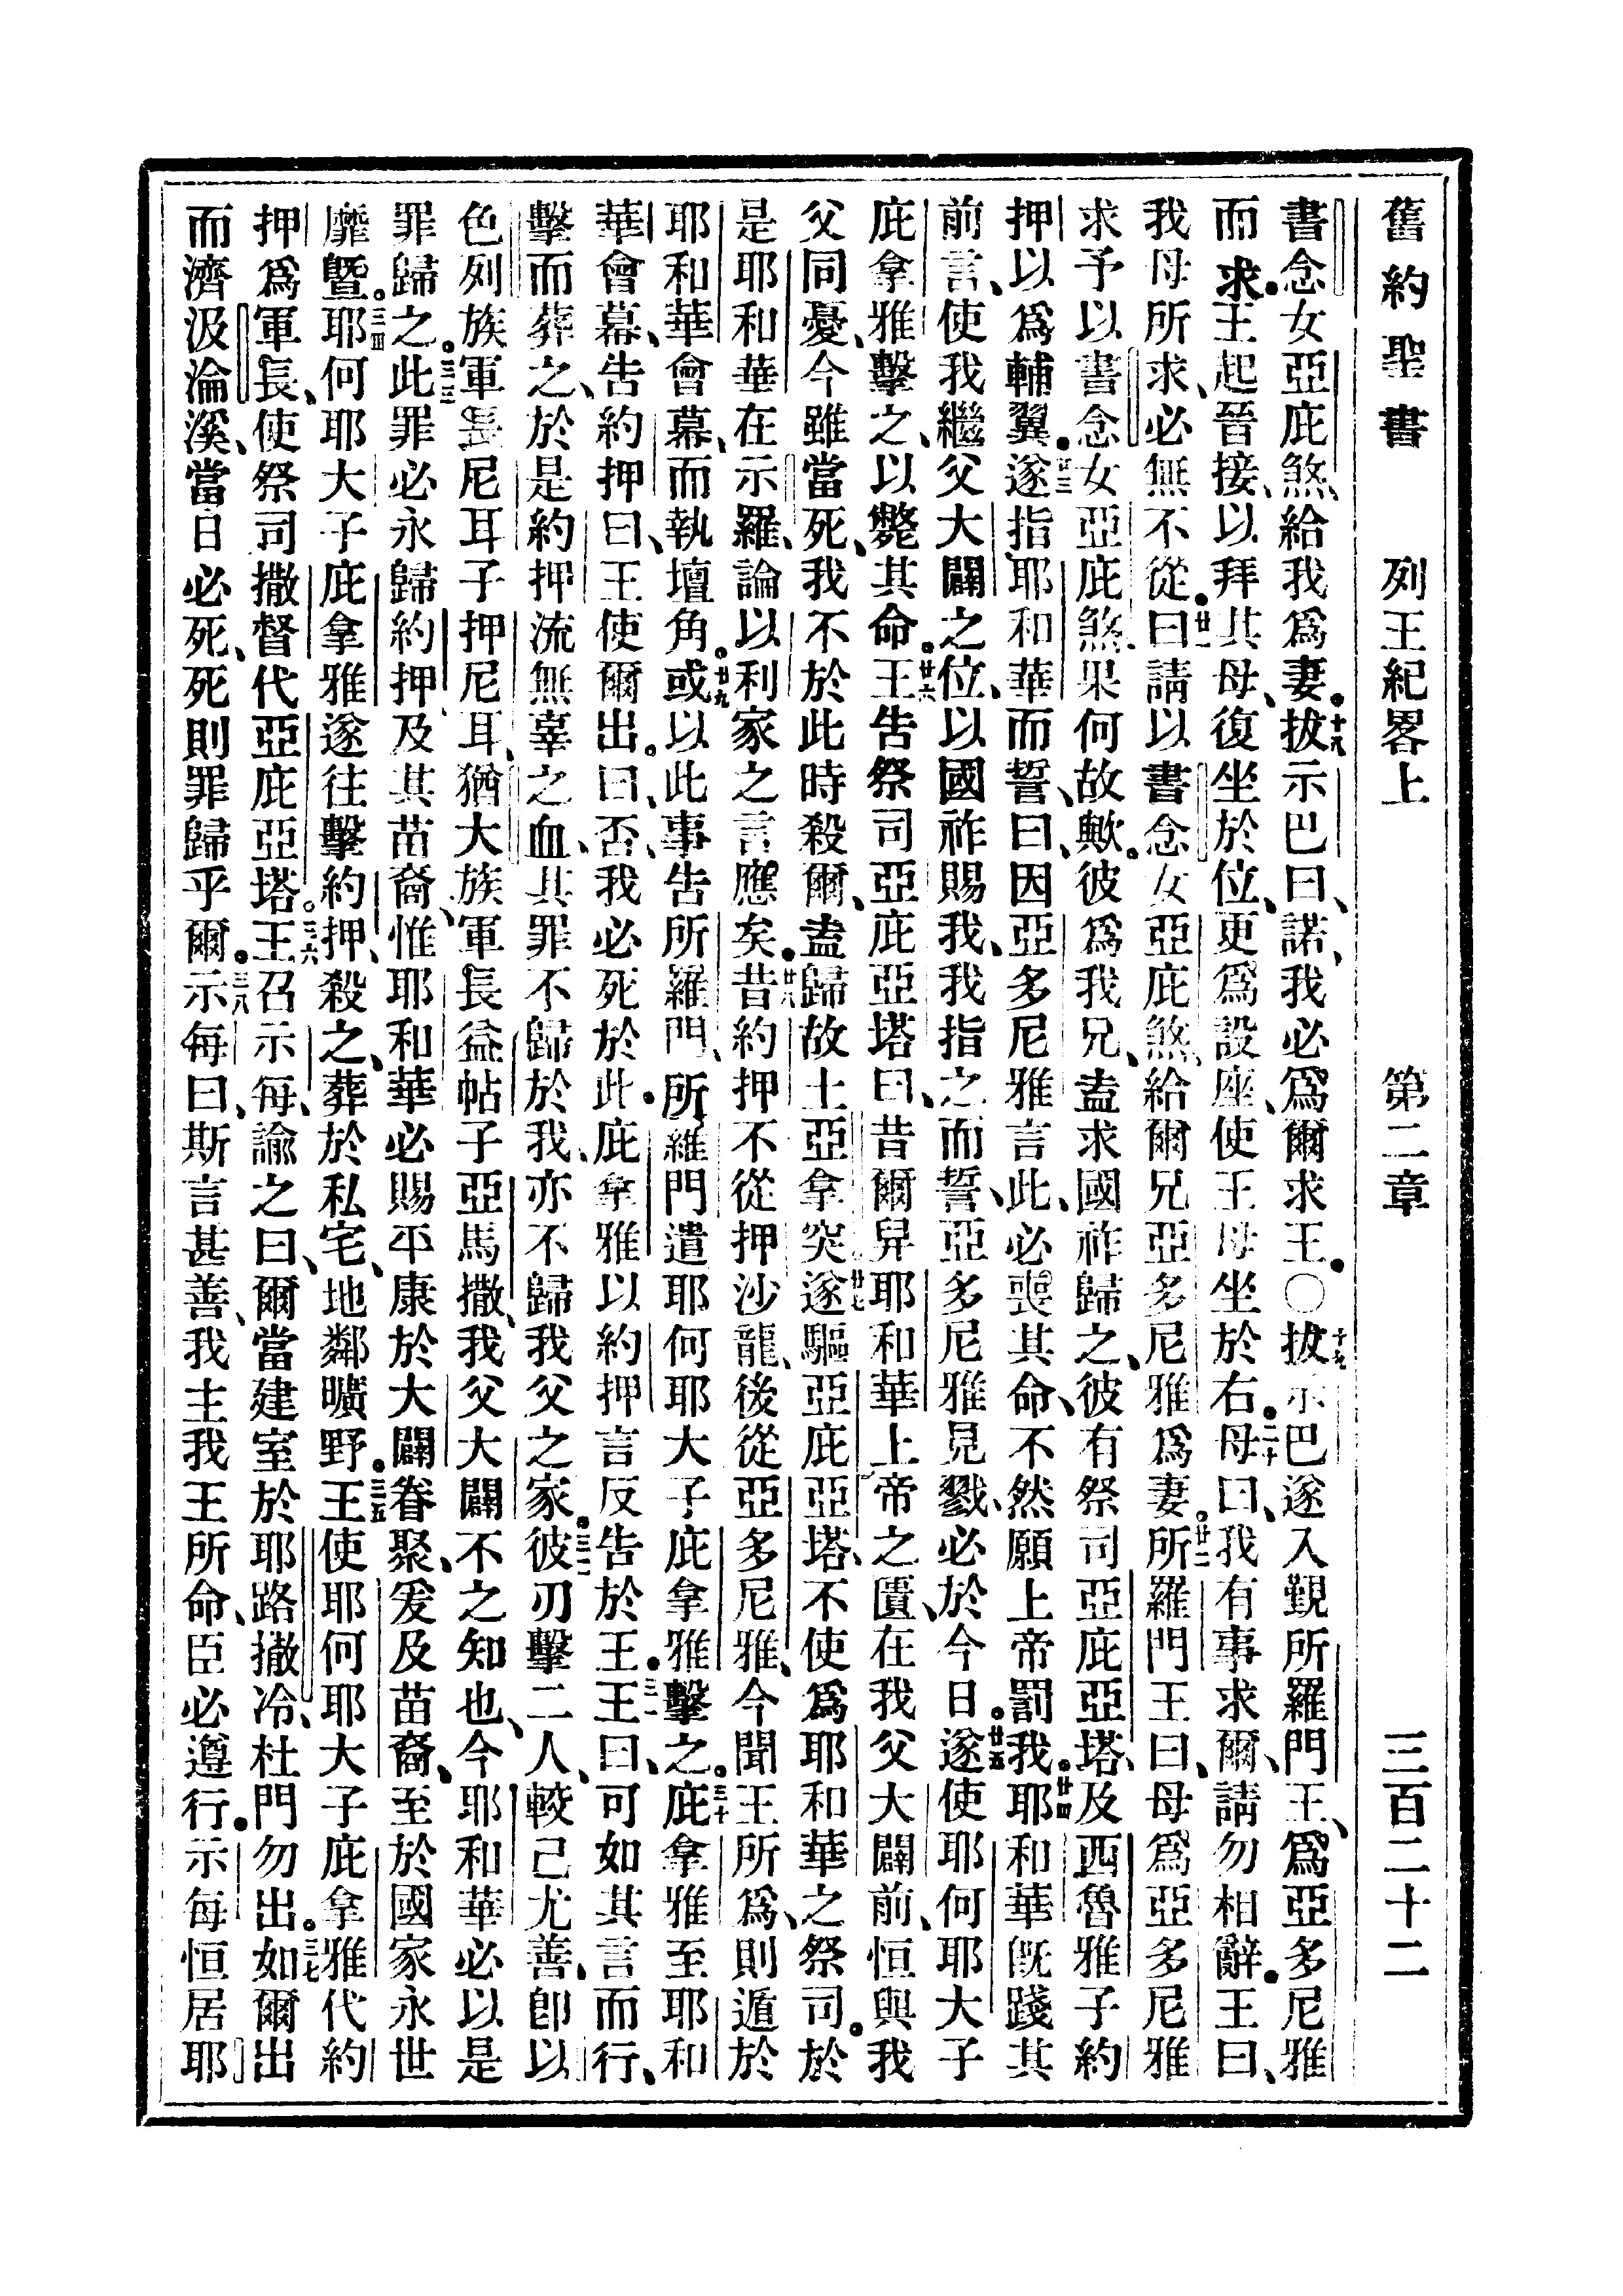 舊約聖書 列王紀畧上 第二章 三百二十二
書念女亞庇煞、給我爲妻。十八拔示巴曰、諾、我必爲爾求王。〇十九拔示巴遂入覲所羅門王、爲亞多尼雅
而求。王起晉接、以拜其母、復坐於位、更爲設座、使王母坐於右。二十母曰、我有事求爾、請勿相辭。王曰、
我母所求、必無不從。廿一曰請以書念女亞庇煞、給爾兄亞多尼雅爲妻。廿二所羅門王曰、母爲亞多尼雅
求予以書念女亞庇煞、果何故歟。彼爲我兄、盍求國祚歸之、彼有祭司亞庇亞塔、及西魯雅子約
押以爲輔翼。廿三遂指耶和華而誓、曰、因亞多尼雅言此、必喪其命、不然願上帝罰我。廿四耶和華旣踐其
前言、使我繼父大闢之位、以國祚賜我、我指之而誓、亞多尼雅見戮、必於今日。廿五遂使耶何耶大子
庇拿雅擊之、以斃其命。廿六王告祭司亞庇亞塔曰、昔爾舁耶和華上帝之匱、在我父大闢前、恒與我
父同憂、今雖當死、我不於此時殺爾、盍歸故土亞拿突。廿七遂驅亞庇亞塔、不使爲耶和華之祭司。於
是耶和華在示羅、論以利家之言應矣。廿八昔約押不從押沙龍、後從亞多尼雅、今聞王所爲、則遁於
耶和華會幕、而執壇角。廿九或以此事告所羅門、所羅門遣耶何耶大子庇拿雅擊之。三十庇拿雅至耶和
華會幕、告約押曰、王使爾出。曰、否、我必死於此。庇拿雅以約押言反告於王。三一王曰、可如其言而行、
擊而葬之、於是約押流無辜之血、其罪不歸於我、亦不歸我父之家。三二彼刃擊二人、較己尤善、卽以
色列族軍長尼耳子押尼耳、猶大族軍長益帖子亞馬撒、我父大闢不之知也、今耶和華必以是
罪歸之。三三此罪必永歸約押、及其苗裔、惟耶和華必賜平康於大闢眷聚、爰及苗裔、至於國家永世
靡曁。三四耶何耶大子庇拿雅遂往擊約押、殺之、葬於私宅、地鄰曠野。三五王使耶何耶大子庇拿雅代約
押爲軍長、使祭司撒督代亞庇亞塔。三六王召示每、諭之曰、爾當建室於耶路撒冷、杜門勿出。三七如爾出
而濟汲淪溪、當日必死、死則罪歸乎爾。三八示每曰、斯言甚善、我主我王所命、臣必遵行。示每恒居耶